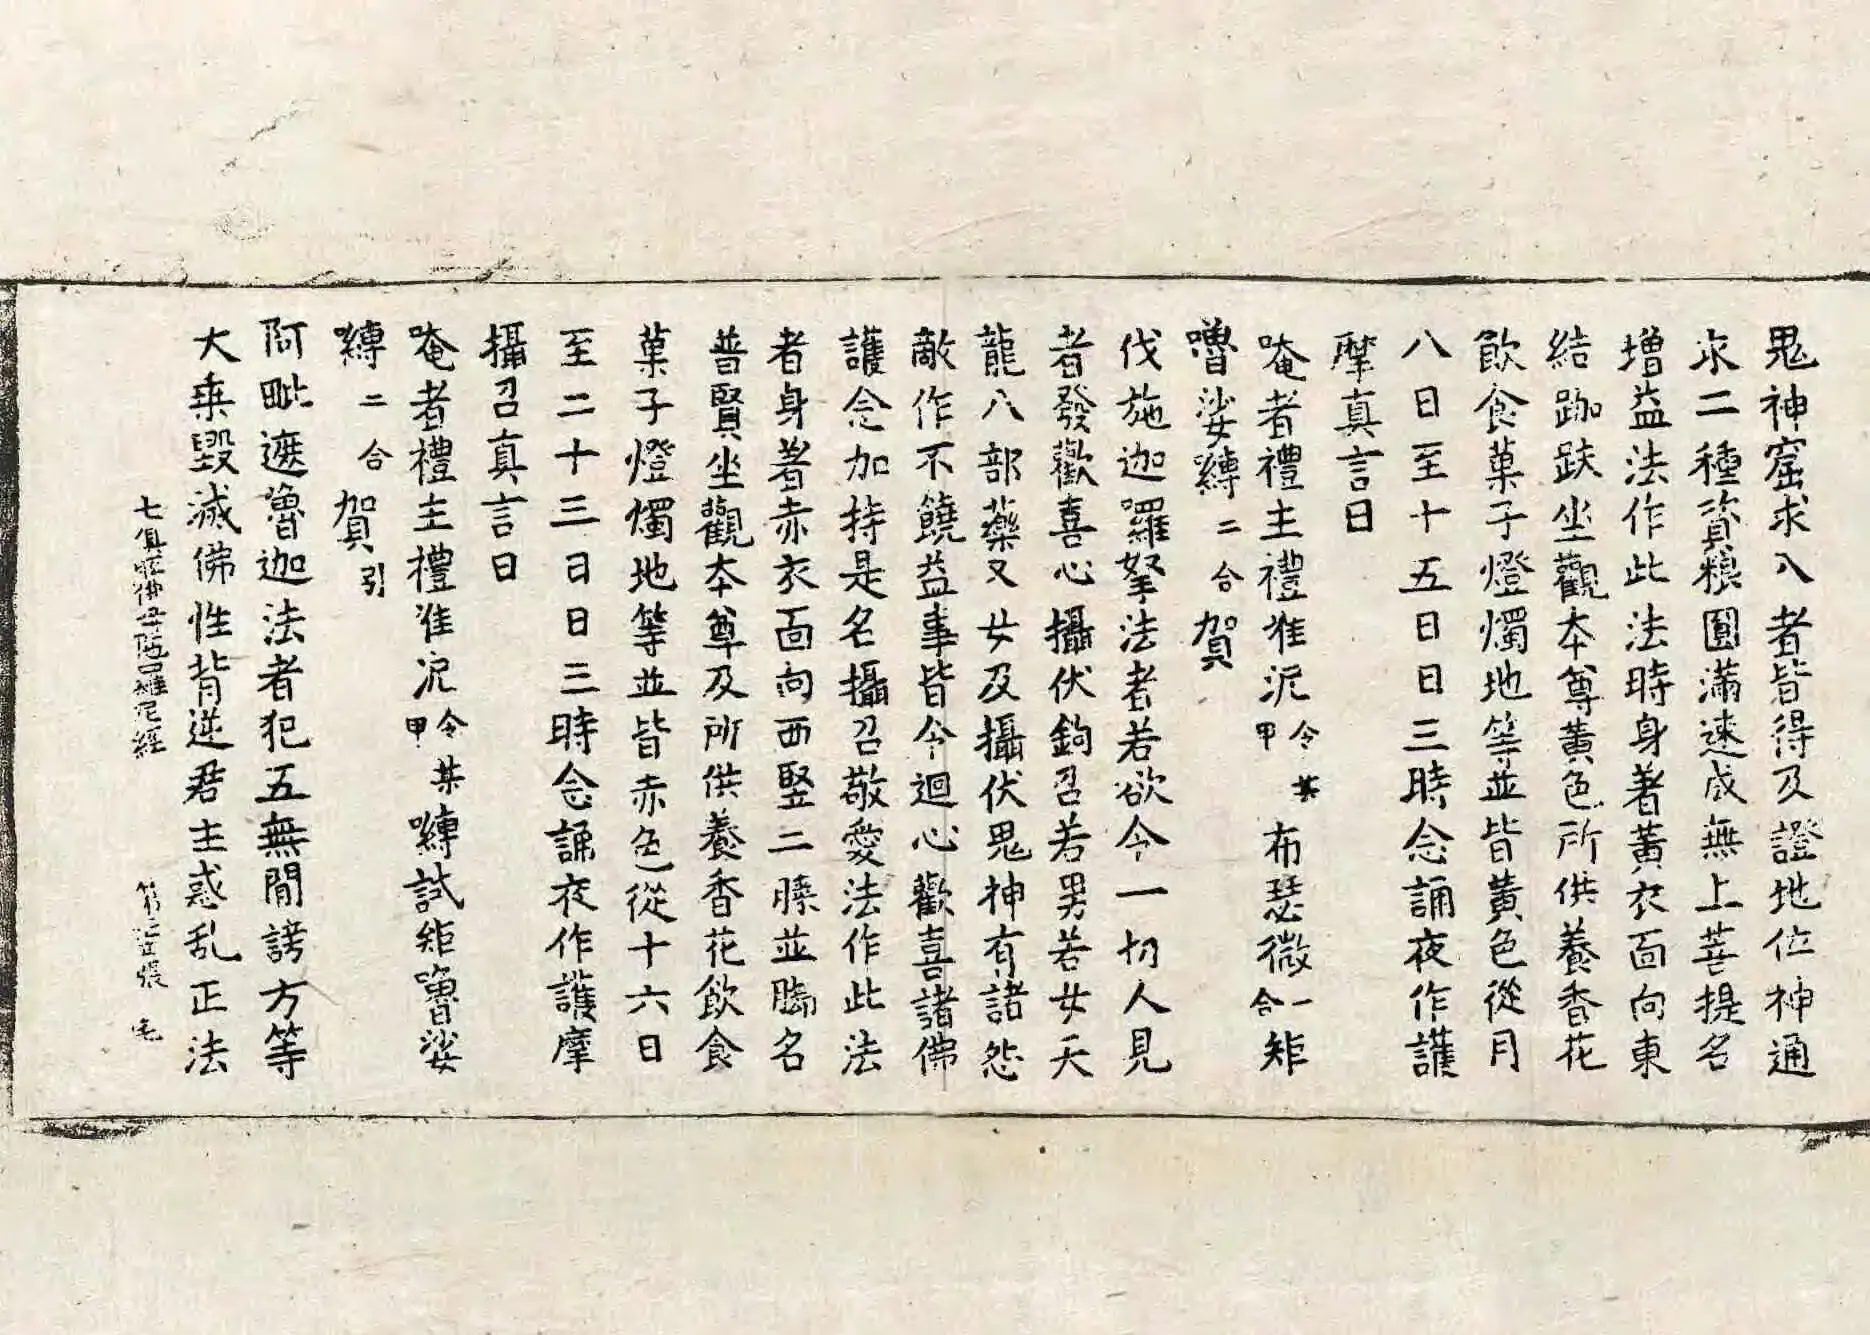 鬼神窟求入者皆得及證地位神通
求二種資粮圓滿速成無上菩提名
増益法作此法時身著黃衣面向東
結跏趺坐觀本尊黃色所供養香花
飲食菓子燈燭地等並皆黃色從月
八日至十五日日三時念誦夜作護
摩真言曰
唵者禮主禮准泥令某甲布瑟徵二合矩
嚕娑嚩二合賀
伐施迦囉拏法者若欲令一切人見
者發歡喜心攝伏鉤召若男若女天
龍八部藥叉女及攝伏鬼神有諸怨
敵作不饒益事皆令迴心歡喜諸佛
護念加持是名攝召敬愛法作此法
者身著赤衣面向西竪二膝並腳名
普賢坐觀本尊及所供養香花飲食
菓子燈燭地等並皆赤色從十六日
至二十三日日三時念誦夜作護摩
攝召真言曰
唵者禮主禮准泥令某甲嚩試矩嚕娑
嚩二合賀引
阿毗遮嚕迦法者犯五無閒謗方等
大乗毀滅佛性背逆君主惑乱正法
七俱胝佛母陁羅尼經 第六張 毛